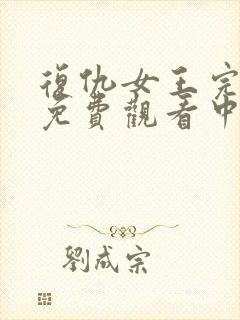 復仇女王完
免費觀看中
劉成宗